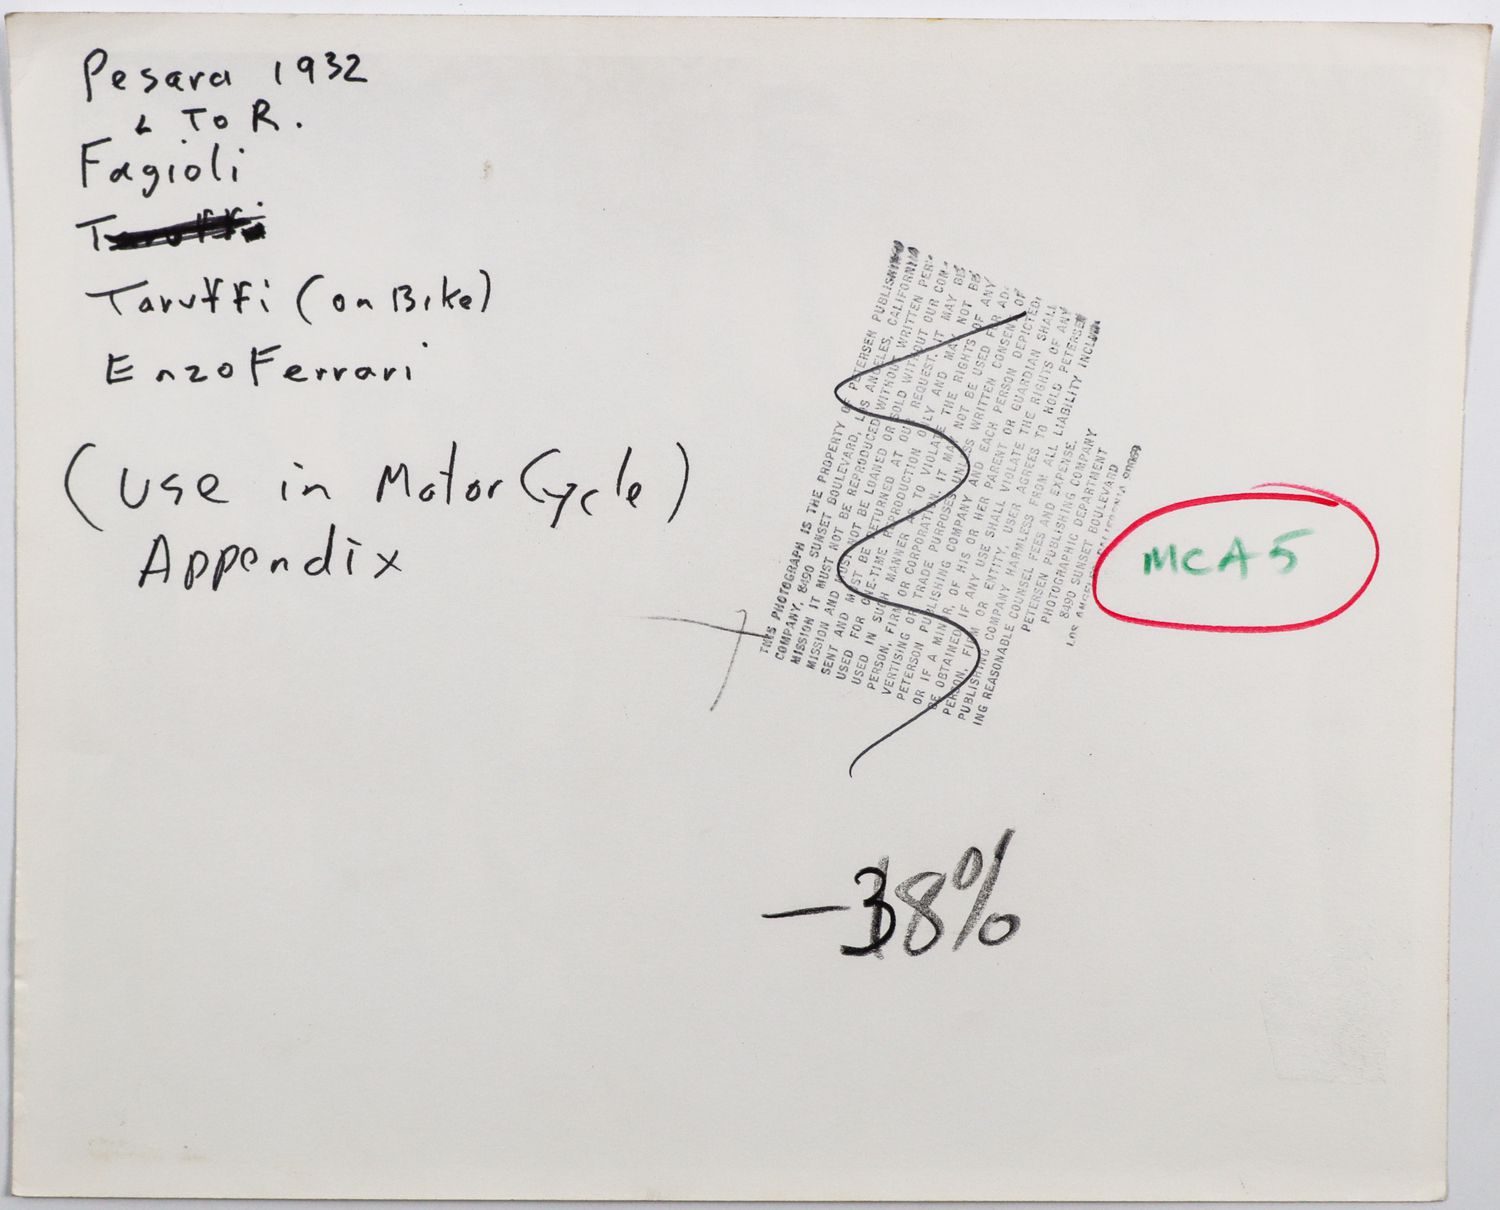 Pesara 1932
L To R.
Fagioli
Taruffi
Taruffi (on Bike)
Enzo Ferrari
(Use in MotorCycle)
Appendix
THIS PHOTOGRAPH IS THE PROPERTY OF PETERSEN PUBLISHING
COMPANY, 8490 SUNSET BOULEVARD, LOS ANGELES, CALIFORNIA
MISSION IT MUST NOT BE REPRODUCED WITHOUT WRITTEN PER-
MISSION AND MUST NOT BE LOANED OR SOLD WITHOUT OUR CON-
SENT AND MUST BE RETURNED AT OUR REQUEST. IT MAY BE
USED FOR ONE-TIME REPRODUCTION ONLY AND MAY NOT BE
USED IN SUCH MANNER AS TO VIOLATE THE RIGHTS OF ANY
PERSON, FIRM OR CORPORATION. IT MAY NOT BE USED FOR AD-
VERTISING OR TRADE PURPOSES UNLESS WRITTEN CONSENT OF
PETERSON PUBLISHING COMPANY AND EACH PERSON DEPICTED,
OR IF A MINOR, OF HIS OR HER PARENT OR GUARDIAN SHALL
BE OBTAINED. IF ANY USE SHALL VIOLATE THE RIGHTS OF ANY
PERSON, FIRM OR ENTITY, USER AGREES TO HOLD PETERSEN
PUBLISHING COMPANY HARMLESS FROM ALL LIABILITY INCLUD-
ING REASONABLE COUNSEL FEES AND EXPENSE.
PETERSEN PUBLISHING COMPANY
PHOTOGRAPHIC DEPARTMENT
8490 SUNSET BOULEVARD
LOS ANGELES, CALIFORNIA 90069
MCA5
-38%